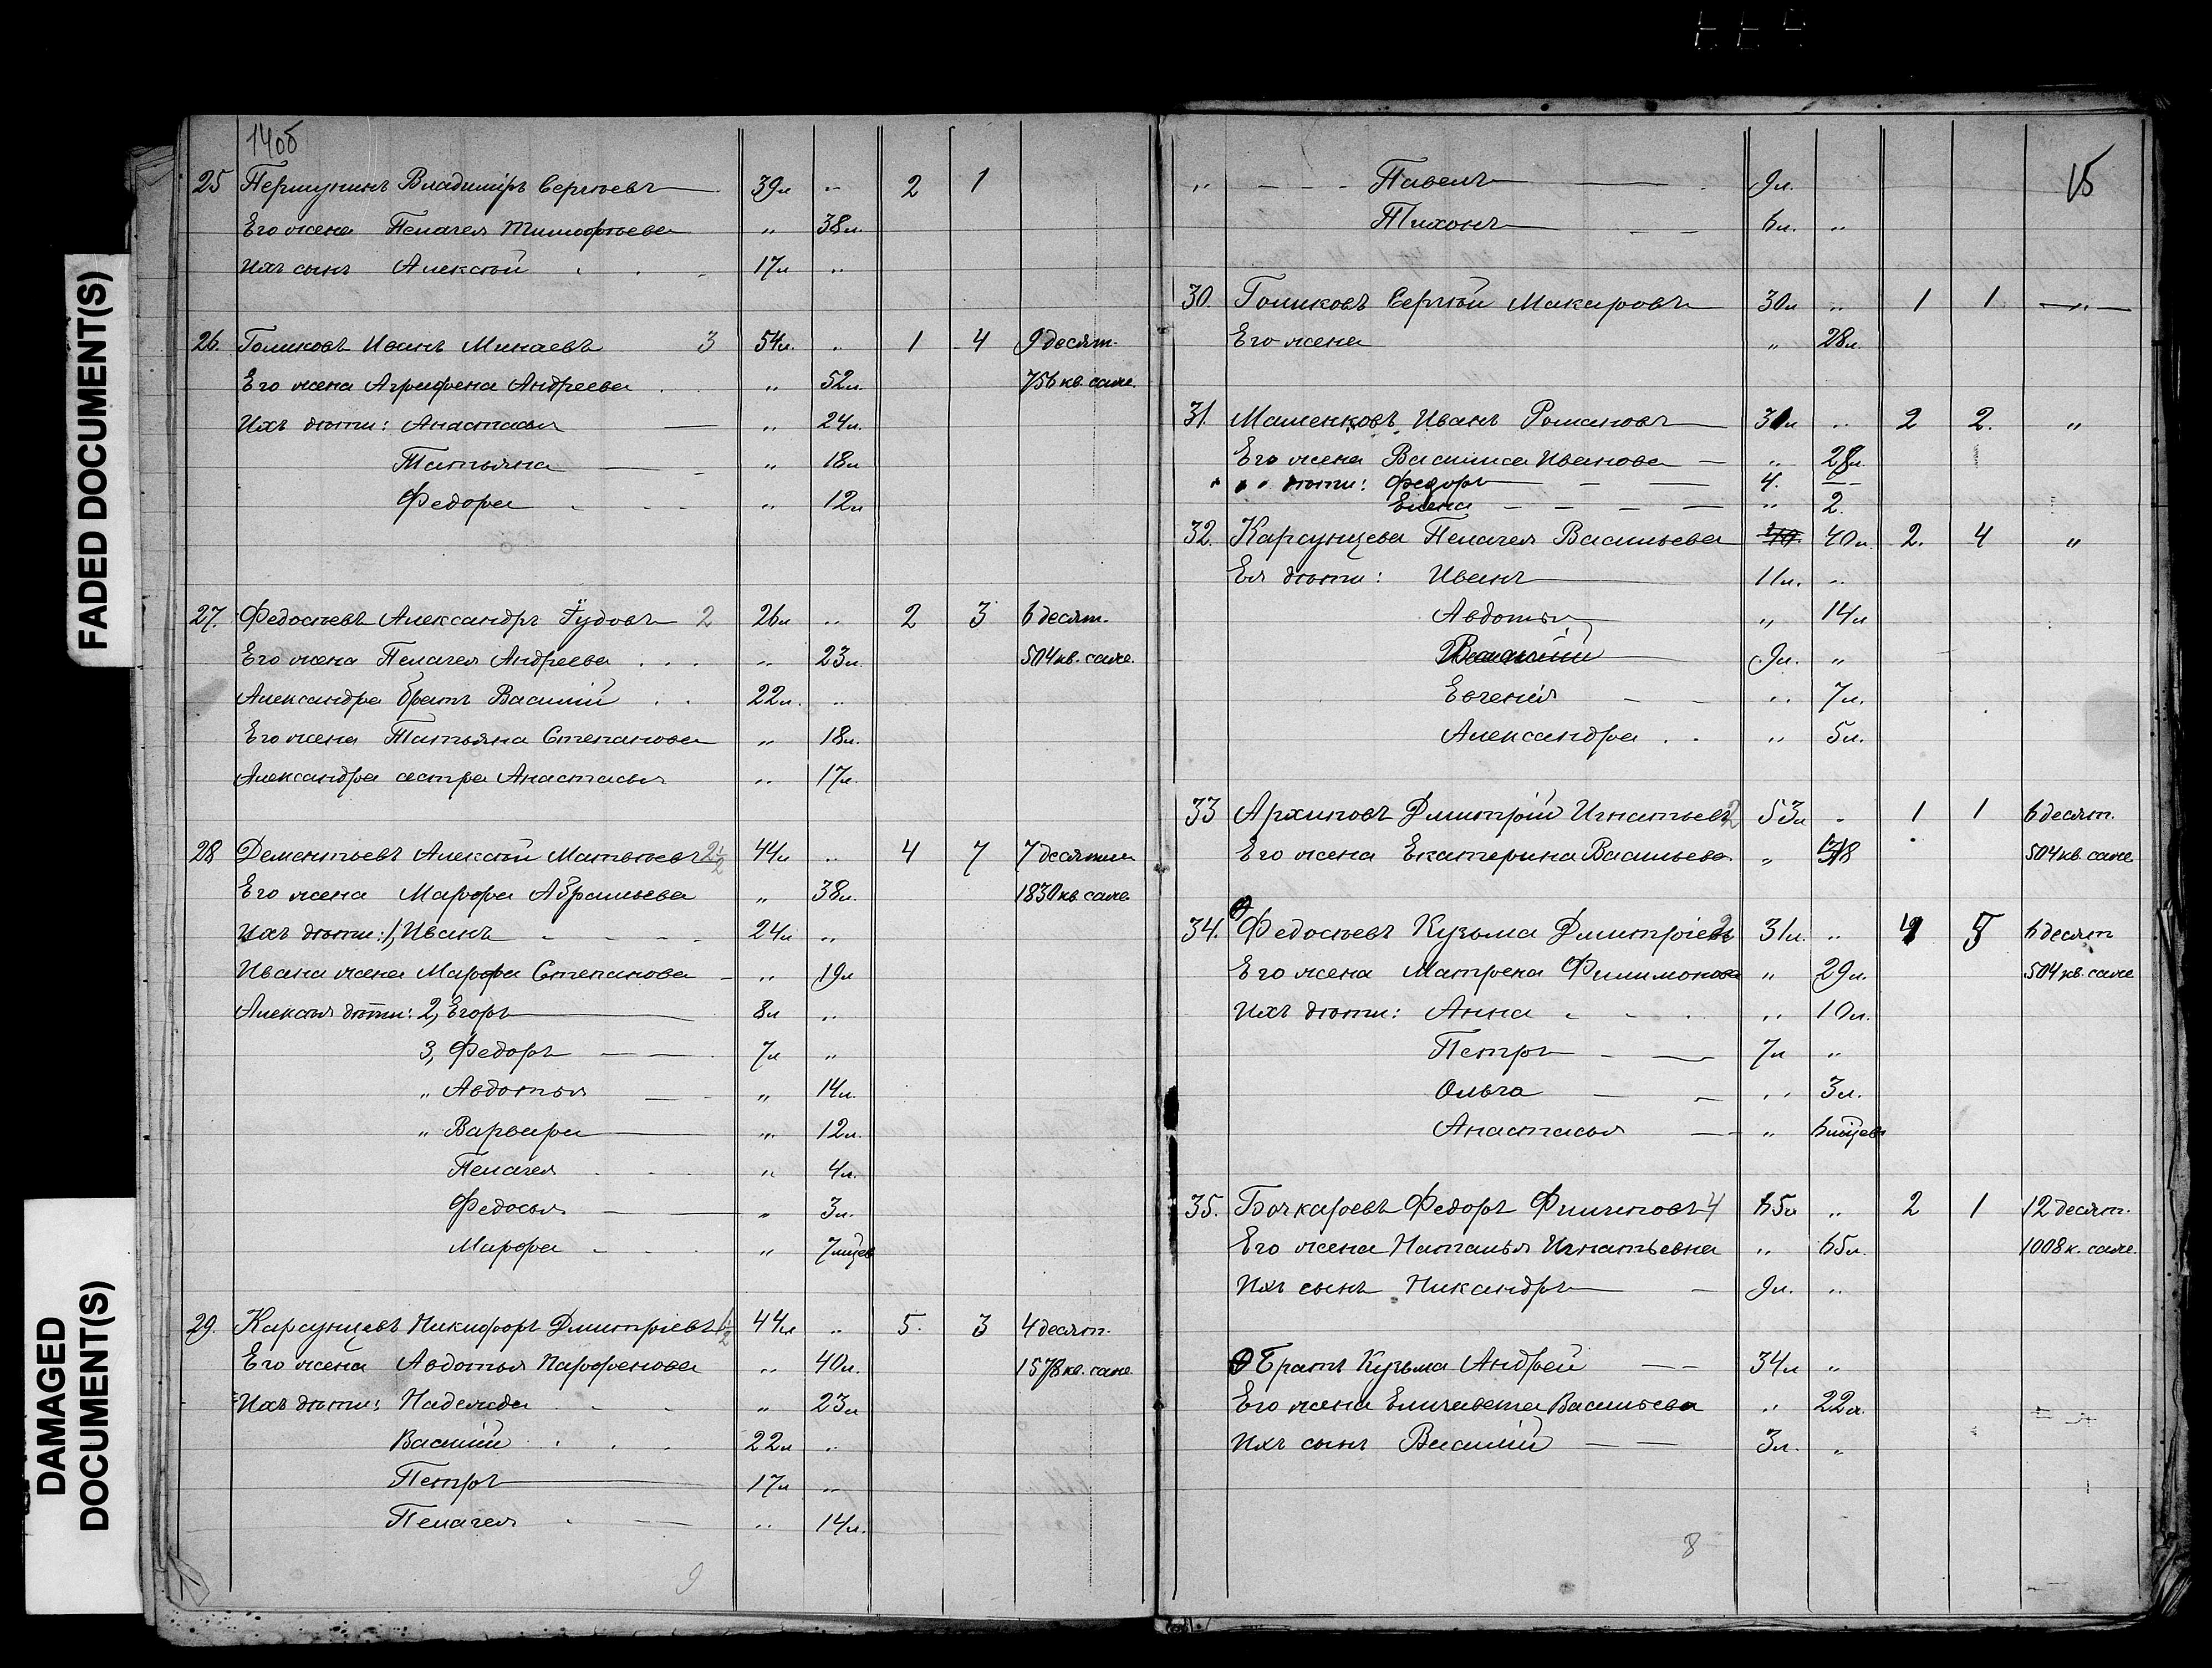 FADED DOCUMENT(S)
DAMAGED
DOCUMENT(S)
14об
25 Першунинъ Владиміръ Сергѣевъ 39л „ 2 1
Его жена Пелагея Тимофѣева „ 38л.
Ихъ сынъ Алексѣй 17л „
26. Голиковъ Иванъ Минаевъ 3 54л. „ 1 4 9 десят.
Его жена Аграфена Андреева „ 52л. 756 кв. саже.
Ихъ дѣти: Анастасья „ 24л.
Татьяна „ 18л
Федора „ 12л
27. Федосѣевъ Александръ Гудовъ 2 26л „ 2 3 6 десят.
Его жена Пелагея Андреева „ 23л. 504 кв. саже.
Александра братъ Василій 22л. „
Его жена Татьяна Степанова „ 18л.
Александра сестра Анастасья „ 17л.
28 Дементьевъ Алексѣй Матвѣевъ 2½ 44л „ 4 7 7 десятин
Его жена Марфа Абрамьева „ 38л. 1830 кв. саже.
Ихъ дѣти: 1, Иванъ 24л „
Ивана жена Марфа Степанова „ 19л
Алексѣя дѣти: 2, Егоръ 8л „
3, Федоръ 7л „
„ Авдотья „ 14л.
„ Варвара „ 12л.
Пелагея „ 4л.
Федосья „ 3л.
Марфа „ 7 мѣцев
29. Карсунцевъ Никифоръ Дмитріевъ 1½ 44л „ 5. 3 4 десят.
Его жена Авдотья Парфенова „ 40л. 1578 кв. саже.
Ихъ дѣти: Надежда „ 23л
Василій 22л „
Петръ 17л „
Пелагея „ 14л.
9
15
„ Павелъ 9л.
Тихонъ 6л. „
30. Голиковъ Сергѣй Макаровъ 30л „ 1 1 „
Его жена „ 28л.
31. Машенковъ Иванъ Романовъ 31л „ 2 2. „
Его жена Василиса Иванова „ 28л.
„ „ дѣти: Федоръ 4. —
Елена „ 2.
32. Карсунцева Пелагея Васильева 40. 40л. 2. 4 „
Ея дѣти: Иванъ 11л. „
Авдотья „ 14л
Василій 9л. „
Евгенія „ 7л.
Александра „ 5л.
33 Архиповъ Дмитрій Игнатьевъ 2 53л „ 1 1 6 десят.
Его жена Екатерина Васильева „ 48 504 кв. саже
34. Федосѣевъ Кузьма Дмитріевъ 2 31л. „ 4 5 6 десят
Его жена Матрена Филимонова „ 29л. 504 кв. саже
Ихъ дѣти: Анна „ 10л.
Петръ 7л „
Ольга „ 3л.
Анастасья „ 6 мѣцев
35. Бочкаревъ Федоръ Филиповъ 4 65л „ 2 1 12 десят.
Его жена Наталья Игнатьевна „ 65л. 1008 к. саже.
Ихъ сынъ Никандръ 9л. „
Братъ Кузьма Андрей 34л „
Его жена Елизавета Васильева „ 22л.
Ихъ сынъ Василій 3л. „
8